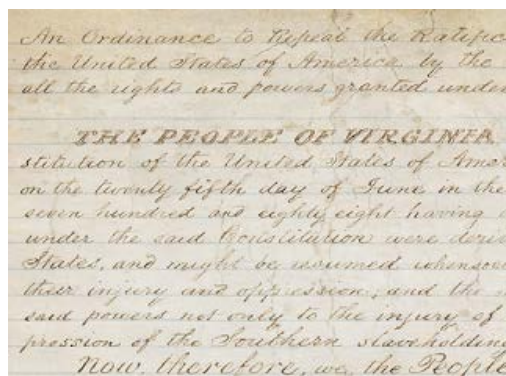 An Ordinance to Repeal the Ratific
the United States of America by the
all the rights and powers granted under
THE PEOPLE OF VIRGINIA
stitution of the United States of Amer
on the twenty fifth day of June in the
seven hundred and eighty eight having
under the said Constitution were deriv
States, and might be resumed whensoe
their injury and oppression, and the
said powers not only to the injury of
pression of the Southern slaveholding
Now, therefore, we, the People